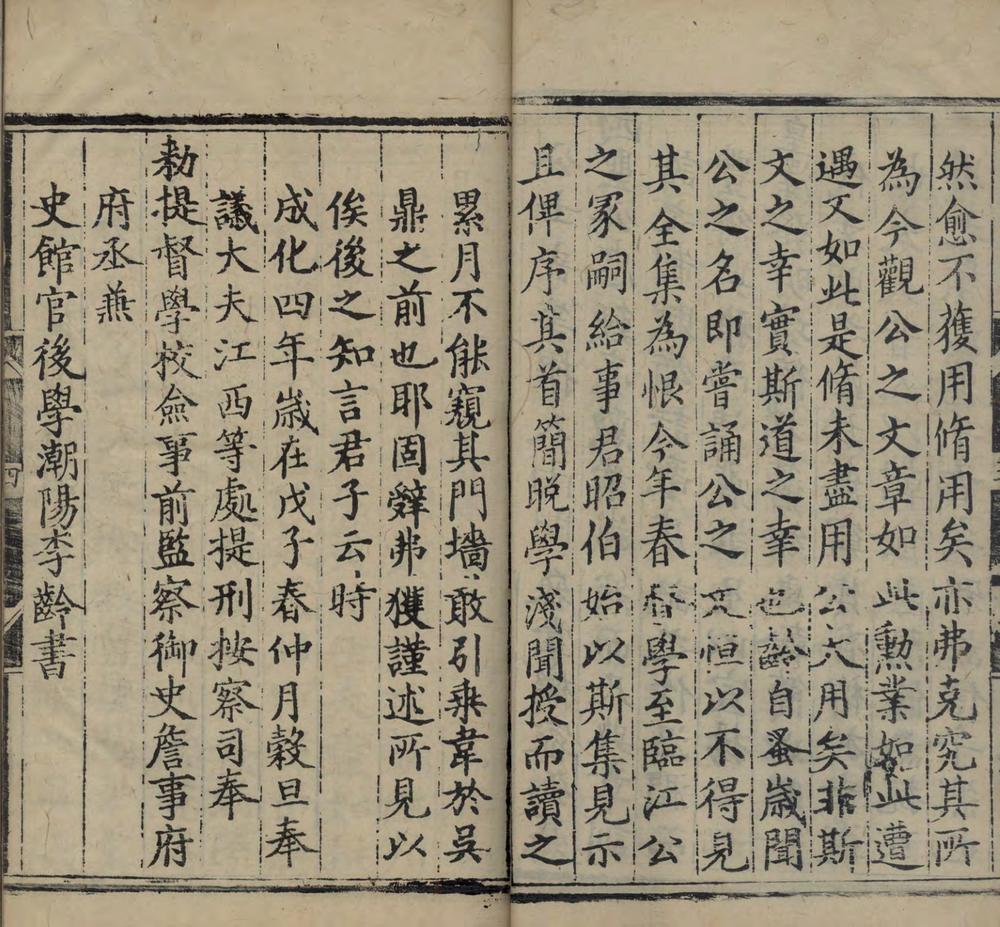 然愈不獲用脩用矣亦弗克究其所
為今觀公之文章如此勳業如此遭
遇又如此是脩未盡用公大用矣非斯
文之幸實斯道之幸也齡自蚤歲聞
公之名即嘗誦公之文恒以不得見
其全集為恨今年春督學至臨江公
之冢嗣給事君昭伯始以斯集見示
且俾序其首簡晚學淺聞授而讀之
累月不能窺其門墻敢引乘韋於吳
鼎之前也耶固辤弗獲謹述所見以
俟後之知言君子云時
成化四年歲在戊子春仲月穀旦奉
議大夫江西等處提刑按察司奉
勑提督學校僉事前監察御史詹事府
府丞兼
史館官後學潮陽李齡書
四